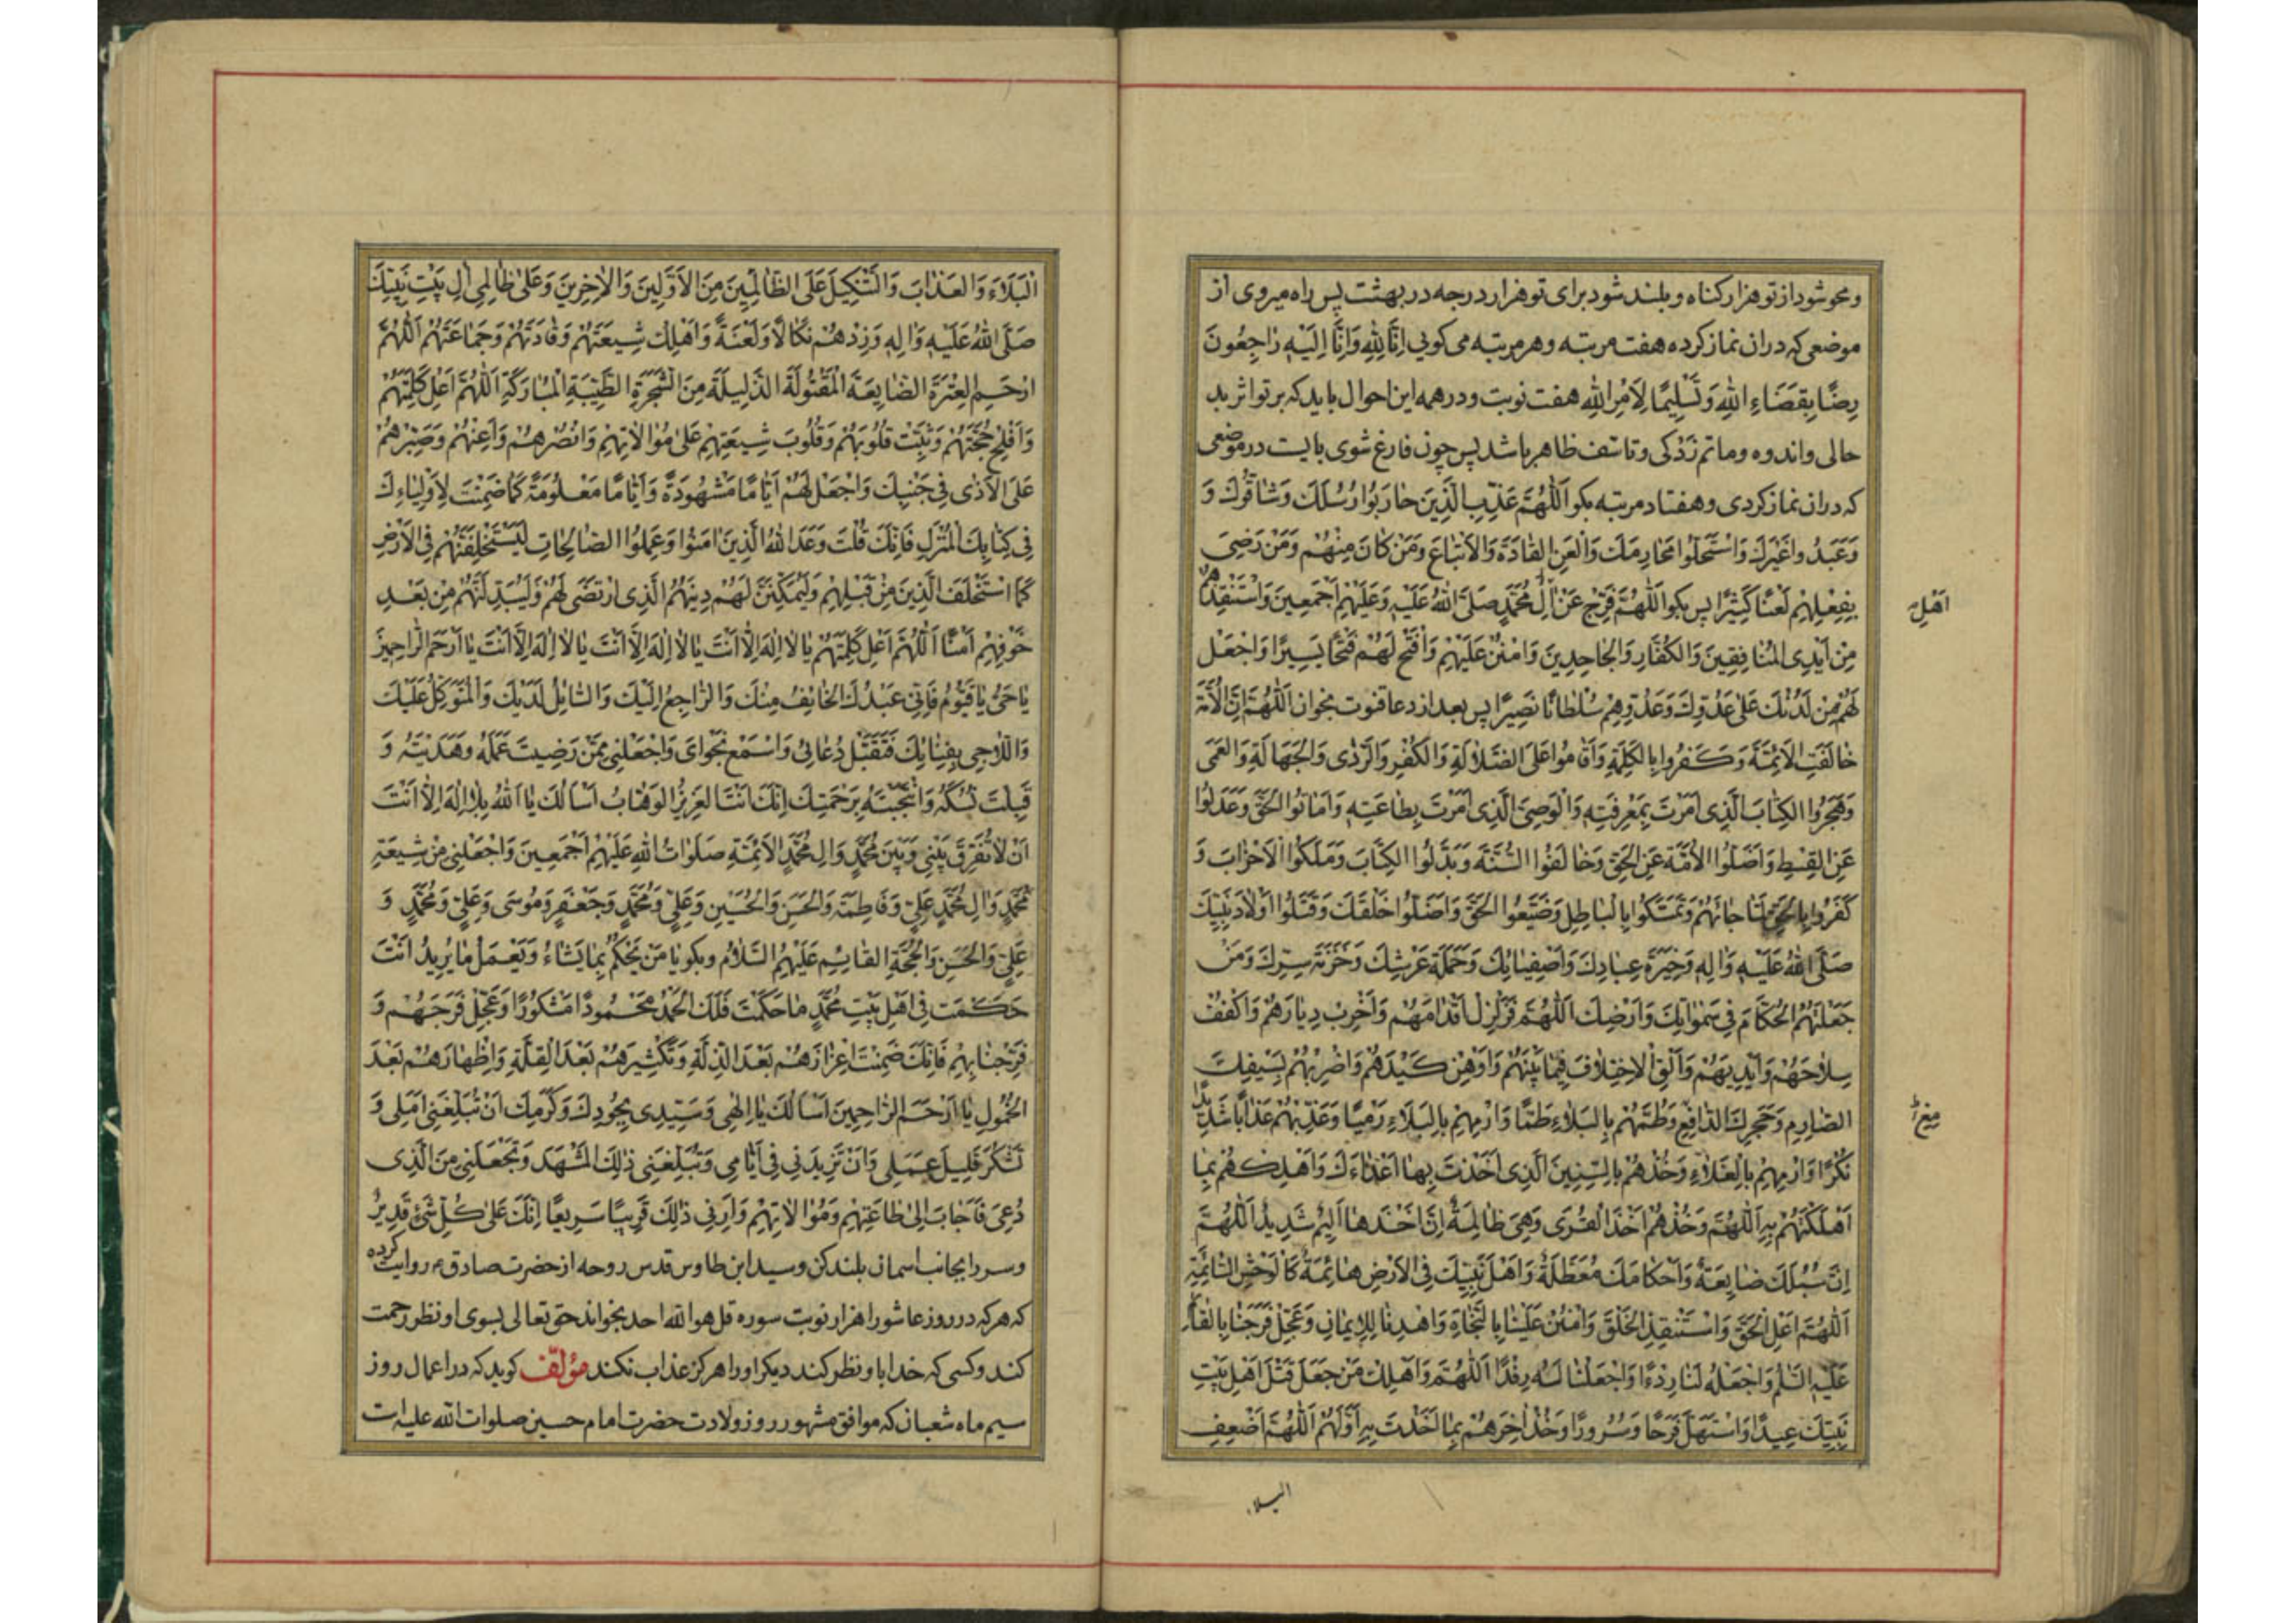 ومحو شود از تو هزار کناه و بلند شود برای تو هزار درجه در بهشت پس راه میروی از
موضعی که دران نماز کرده هفت مرتبه و هر مرتبه می کوئی اِنَّا لِلّٰهِ وَاِنَّا اِلَیْهِ رٰاجِعُونَ
رِضًا بِقَضَاءِ اللّٰهِ وَتَسْلِیمًا لِاَمْرِ اللّٰهِ هفت نوبت و در همه این احوال باید که بر تو اثر بد
حالی و اندوه و ماتم زدکی و تاسّف ظاهر باشد پس چون فارغ شوی بایست در موضعی
که دران نماز کردی و هفتاد مرتبه بکو اَللّٰهُمَّ عَذِّبِ الَّذِینَ حٰارَبُوا رُسُلَكَ وَشٰاقُّوكَ وَ
وَعَبَدُوا غَیْرَكَ وَاسْتَحَلُّوا مَحٰارِمَكَ وَالْعَنِ القٰادَةَ وَالاَتْبٰاعَ وَمَنْ كٰانَ مِنْهُمْ وَمَنْ رَضِیَ
بِفِعْلِهِمْ لَعْنًا كَثِیْرًا پس بکو اَللّٰهُمَّ فَرِّجْ عَنْ اٰلِ مُحَمَّدٍ صَلَّی اللّٰهُ عَلَیْهِ وَعَلَیْهِمْ اَجْمَعِینَ وَاسْتَنْقِذْهُمْ
اَهْلِ
مِنْ اَیْدِی المُنٰافِقِینَ وَالكُفّٰارِ وَالجٰاحِدِینَ وَامْنُنْ عَلَیْهِمْ وَافْتَحْ لَهُمْ فَتْحًا یَسِیرًا وَاجْعَلْ
لَهُمْ مِنْ لَدُنْكَ عَلیٰ عَدُوِّكَ وَعَدُوِّهِمْ سُلْطٰانًا نَصِیرًا پس بعد از دعا قنوت بخوان اَللّٰهُمَّ اِنَّ الاُمَّةَ
خٰالَفَتِ الاَئِمَّةَ وَكَفَرُوا بِالكَلِمَةِ وَاَقٰامُوا عَلَی الضَّلاٰلَةِ وَالكُفْرِ وَالرَّدٰی وَالجَهَالَةِ وَالعَمَی
وَهَجَرُوا الكِتٰابَ الَّذِی اَمَرْتَ بِمَعْرِفَتِهِ وَالْوَصِیَّ الَّذِی اَمَرْتَ بِطٰاعَتِهِ وَاَمٰاتُوا الحَقَّ وَعَدَلُوا
عَنِ القِسْطِ وَاَضَلُّوا الاُمَّةَ عَنِ الحَقِّ وَخٰالَفُوا السُّنَّةَ وَبَدَّلُوا الكِتٰابَ وَمَلَكُوا الاَحْزٰابَ وَ
كَفَرُوا بِالحَقِّ لَمّٰا جٰائَهُمْ وَتَمَسَّكُوا بِالبٰاطِلِ وَضَیَّعُوا الحَقَّ وَاَضَلُّوا خَلْقَكَ وَقَتَلُوا اَوْلاٰدَ نَبِیِّكَ
صَلَّی اللّٰهُ عَلَیْهِ وَاٰلِهِ وَخِیَرَةَ عِبٰادِكَ وَاَصْفِیٰائِكَ وَحَمَلَةَ عَرْشِكَ وَخَزَنَةَ سِرِّكَ وَمَنْ
جَعَلْتَهُمُ الحُكّٰامَ فِی سَمٰوٰاتِكَ وَاَرْضِكَ اَللّٰهُمَّ فَزَلْزِلْ اَقْدٰامَهُمْ وَاَخْرِبْ دِیٰارَهُمْ وَاكْفُفْ
سِلاٰحَهُمْ وَاَیْدِیَهُمْ وَاَلْقِ الاِخْتِلاٰفَ فِیمٰا بَیْنَهُمْ وَاَوْهِنْ كَیْدَهُمْ وَاضْرِبْهُمْ بِسَیْفِكَ
الصّٰارِمِ وَحَجَرِكَ الدّٰافِعِ وَطُمَّهُمْ بِالبَلاٰءِ طَمًّا وَارْمِهِمْ بِالبَلاٰءِ رَمْیًا وَعَذِّبْهُمْ عَذٰابًا شَدِیدًا
نُكْرًا وَارْمِهِمْ بِالغَلاٰءِ وَخُذْهُمْ بِالسِّنِینَ الَّذِی اَخَذْتَ بِهٰا اَعْدٰاءَكَ وَاَهْلِكْهُمْ بِمٰا
اَهْلَكْتَهُمْ بِهِ اَللّٰهُمَّ وَخُذْهُمْ اَخْذَ الْقُرَی وَهِیَ ظٰالِمَةٌ اِنَّ اَخْذَهٰا اَلِیْمٌ شَدِیدٌ اَللّٰهُمَّ
اِنَّ سُبُلَكَ ضٰایِعَةٌ وَاَحْكٰامَكَ مُعَطَّلَةٌ وَاَهْلَ نَبِیِّكَ فِی الاَرْضِ هٰائِمَةٌ كَالوَحْشِ السّٰائِمَةِ
اَللّٰهُمَّ اَعْلِ الْحَقَّ وَاسْتَنْقِذِ الخَلْقَ وَامْنُنْ عَلَیْنٰا بِالنَّجٰاةِ وَاهْدِنٰا لِلاِیمٰانِ وَعَجِّلْ فَرَجَنٰا بِالقٰائِمِ
عَلَیْهِ السَّلٰمُ وَاجْعَلْهُ لَنٰا رِدْءًا وَاجْعَلْنٰا لَهُ رِفْدًا اَللّٰهُمَّ وَاَهْلِكْ مَنْ جَعَلَ قَتْلَ اَهْلِ بَیْتِ
نَبِیِّكَ عِیدًا وَاسْتَهَلَّ فَرَحًا وَسُرُورًا وَخُذْ اٰخِرَهُمْ بِمٰا اَخَذْتَ بِهِ اَوَّلَهُمْ اَللّٰهُمَّ اَضْعِفِ
البلاء
الْبَلاٰءَ وَالعَذٰابَ وَالتَّنْكِیلَ عَلَی الظّٰالِمِینَ مِنَ الاَوَّلِینَ وَالاٰخِرِینَ وَعَلیٰ ظٰالِمِی اٰلِ بَیْتِ نَبِیِّكَ
صَلَّی اللّٰهُ عَلَیْهِ وَاٰلِهِ وَزِدْهُمْ نَكٰالاً وَلَعْنَةً وَاَهْلِكْ شِیعَتَهُمْ وَقٰادَتَهُمْ وَجَمٰاعَتَهُمْ اَللّٰهُمَّ
ارْحَمِ العِتْرَةَ الضّٰایِعَةَ الْمَقْتُولَةَ الذَّلِیلَةَ مِنَ الشَّجَرَةِ الطَّیِّبَةِ الْمُبٰارَكَةِ اَللّٰهُمَّ اَعْلِ كَلِمَتَهُمْ
وَاَفْلِحْ حُجَّتَهُمْ وَثَبِّتْ قُلُوبَهُمْ وَقُلُوبَ شِیعَتِهِمْ عَلیٰ مُوٰالاٰتِهِمْ وَانْصُرْهُمْ وَاَعِنْهُمْ وَصَبِّرْهُمْ
عَلَی الاَذٰی فِی جَنْبِكَ وَاجْعَلْ لَهُمْ اَیّٰامًا مَشْهُودَةً وَاَیّٰامًا مَعْلُومَةً كَمٰا ضَمِنْتَ لِاَوْلِیٰاءِكَ
فِی كِتٰابِكَ الْمُنْزَلِ فَاِنَّكَ قُلْتَ وَعَدَ اللّٰهُ الَّذِینَ اٰمَنُوا وَعَمِلُوا الصّٰالِحٰاتِ لَیَسْتَخْلِفَنَّهُمْ فِی الاَرْضِ
كَمَا اسْتَخْلَفَ الَّذِینَ مِنْ قَبْلِهِمْ وَلَیُمَكِّنَنَّ لَهُمْ دِینَهُمُ الَّذِی ارْتَضَی لَهُمْ وَلَیُبَدِّلَنَّهُمْ مِنْ بَعْدِ
خَوْفِهِمْ اَمْنًا اَللّٰهُمَّ اَعْلِ كَلِمَتَهُمْ یٰا لاٰ اِلٰهَ اِلاّٰ اَنْتَ یٰا لاٰ اِلٰهَ اِلاّٰ اَنْتَ یٰا لاٰ اِلٰهَ اِلاّٰ اَنْتَ یٰا اَرْحَمَ الرّٰاحِمِینَ
یٰا حَیُّ یٰا قَیُّومُ فَاِنِّی عَبْدُكَ الخٰایِفُ مِنْكَ وَالرّٰاجِعُ اِلَیْكَ وَالسّٰایِلُ لَدَیْكَ وَالْمُتَوَكِّلُ عَلَیْكَ
وَاللّاٰجِی بِفِنٰائِكَ فَتَقَبَّلْ دُعٰائِی وَاسْمَعْ نَجْوٰایَ وَاجْعَلْنِی مِمَّنْ رَضِیتَ عَمَلَهُ وَهَدَیْتَهُ وَ
قَبِلْتَ نُسُكَهُ وَانْتَجَبْتَهُ بِرَحْمَتِكَ اِنَّكَ اَنْتَ العَزِیزُ الوَهّٰابُ اَسْاَلُكَ یٰا اَللّٰهُ بِلاٰ اِلٰهَ اِلاّٰ اَنْتَ
اَنْ لاٰ تُفَرِّقَ بَیْنِی وَبَیْنَ مُحَمَّدٍ وَاٰلِ مُحَمَّدٍ الاَئِمَّةِ صَلَوٰاتُ اللّٰهِ عَلَیْهِمْ اَجْمَعِینَ وَاجْعَلْنِی مِنْ شِیعَةِ
مُحَمَّدٍ وَاٰلِ مُحَمَّدٍ عَلِیٍّ وَفٰاطِمَةَ وَالحَسَنِ وَالحُسَیْنِ وَعَلِیٍّ وَمُحَمَّدٍ وَجَعْفَرٍ وَمُوسَی وَعَلِیٍّ وَمُحَمَّدٍ وَ
عَلِیٍّ وَالحَسَنِ وَالحُجَّةِ القٰایِمِ عَلَیْهِمُ السَّلاٰمُ وبکو یٰا مَنْ یَحْكُمُ بِمٰا یَشٰاءُ وَیَعْمَلُ مٰا یُرِیدُ اَنْتَ
حَكَمْتَ فِی اَهْلِ بَیْتِ مُحَمَّدٍ مٰا حَكَمْتَ فَلَكَ الحَمْدُ مَحْمُودًا مَشْكُورًا وَعَجِّلْ فَرَجَهُمْ وَ
فَرَجَنٰا بِهِمْ فَاِنَّكَ ضَمِنْتَ اِعْزٰازَهُمْ بَعْدَ الذِّلَّةِ وَتَكْثِیرَهُمْ بَعْدَ القِلَّةِ وَاِظْهٰارَهُمْ بَعْدَ
الخُمُولِ یٰا اَرْحَمَ الرّٰاحِمِینَ اَسْاَلُكَ یٰا اِلٰهِی وَسَیِّدِی بِجُودِكَ وَكَرَمِكَ اَنْ تُبَلِّغَنِی اَمَلِی وَ
تَشْكُرَ قَلِیلَ عَمَلِی وَاَنْ تَزِیدَنِی فِی اَیّٰامِی وَتُبَلِّغَنِی ذٰلِكَ المَشْهَدَ وَتَجْعَلَنِی مِنَ الَّذِی
دُعِیَ فَاَجٰابَ اِلیٰ طٰاعَتِهِمْ وَمُوٰالاٰتِهِمْ وَاَرِنِی ذٰلِكَ قَرِیبًا سَرِیعًا اِنَّكَ عَلیٰ كُلِّ شَیْءٍ قَدِیرٌ
وسر را بجانب اسمان بلند کن و سید ابن طاوس قدس روحه از حضرت صادق ع روایت کرده
که هر که در روز عاشورا هزار نوبت سوره قل هو الله احد بخواند حق تعالی بسوی او نظر رحمت
کند و کسی که خدا با و نظر کند دیکر او را هرکز عذاب نکند مؤلّف کوید که در اعمال روز
سیم ماه شعبان که موافق مشهور روز ولادت حضرت امام حسین صلوات الله علیه است